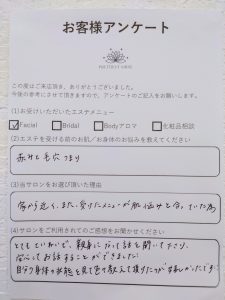 お客様アンケート
この度はご来店頂き、ありがとうございました。
今後の参考にさせて頂きますので、アンケートのご記入をお願いします。
(1)お受けいただいたエステメニュー
Facial Bridal Bodyアロマ 化粧品相談
(2)エステを受ける前のお肌／お身体のお悩みを教えてください
赤みと毛穴つまり
(3)当サロンをお選び頂いた理由
家から近く、また、受けたメニューが肌悩みと合っていた為
(4)サロンをご利用されてのご感想をお聞かせください
とてもていねいで、親身になって話を聞いて下さり、
安心してお話することができました!
自分の身体の状態を見て色々教えて頂けたのが嬉しかったです!